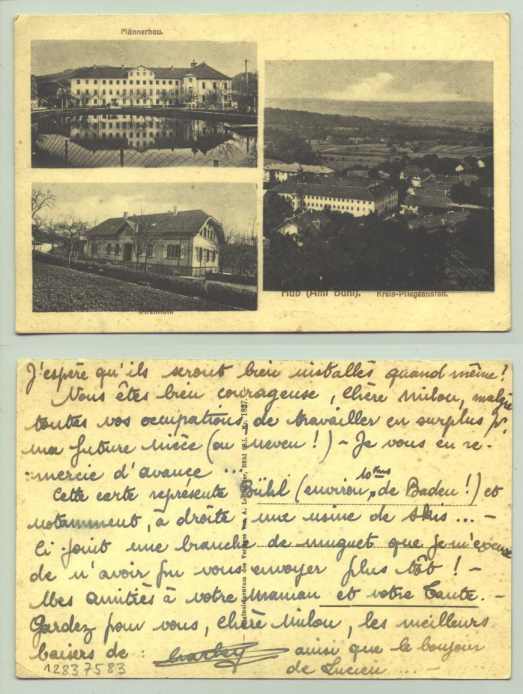 Männerbau.
Hub (Amt Bühl). Kreis-Pflegeanstalt.
J'espère qu'ils seront bien installés quand même!
Vous êtes bien courageuse, Chère Milou, malgré
toutes vos occupations de travailler en surplus pr
ma future nièce (ou neveu!) - Je vous en re-
mercie d'avance ...
Cette carte représente Bühl (environ 10 kms de Baden!) et
notamment, à droite, une usine de skis ... -
Ci joint une branche de muguet que je m'excuse
de n'avoir pu vous envoyer plus tôt! -
Mes amitiés à votre Maman et votre Tante. -
Gardez pour vous, Chère Milou, les meilleurs
baisers de : Charley ainsi que le bonjour
de Lucien ... -
12837583